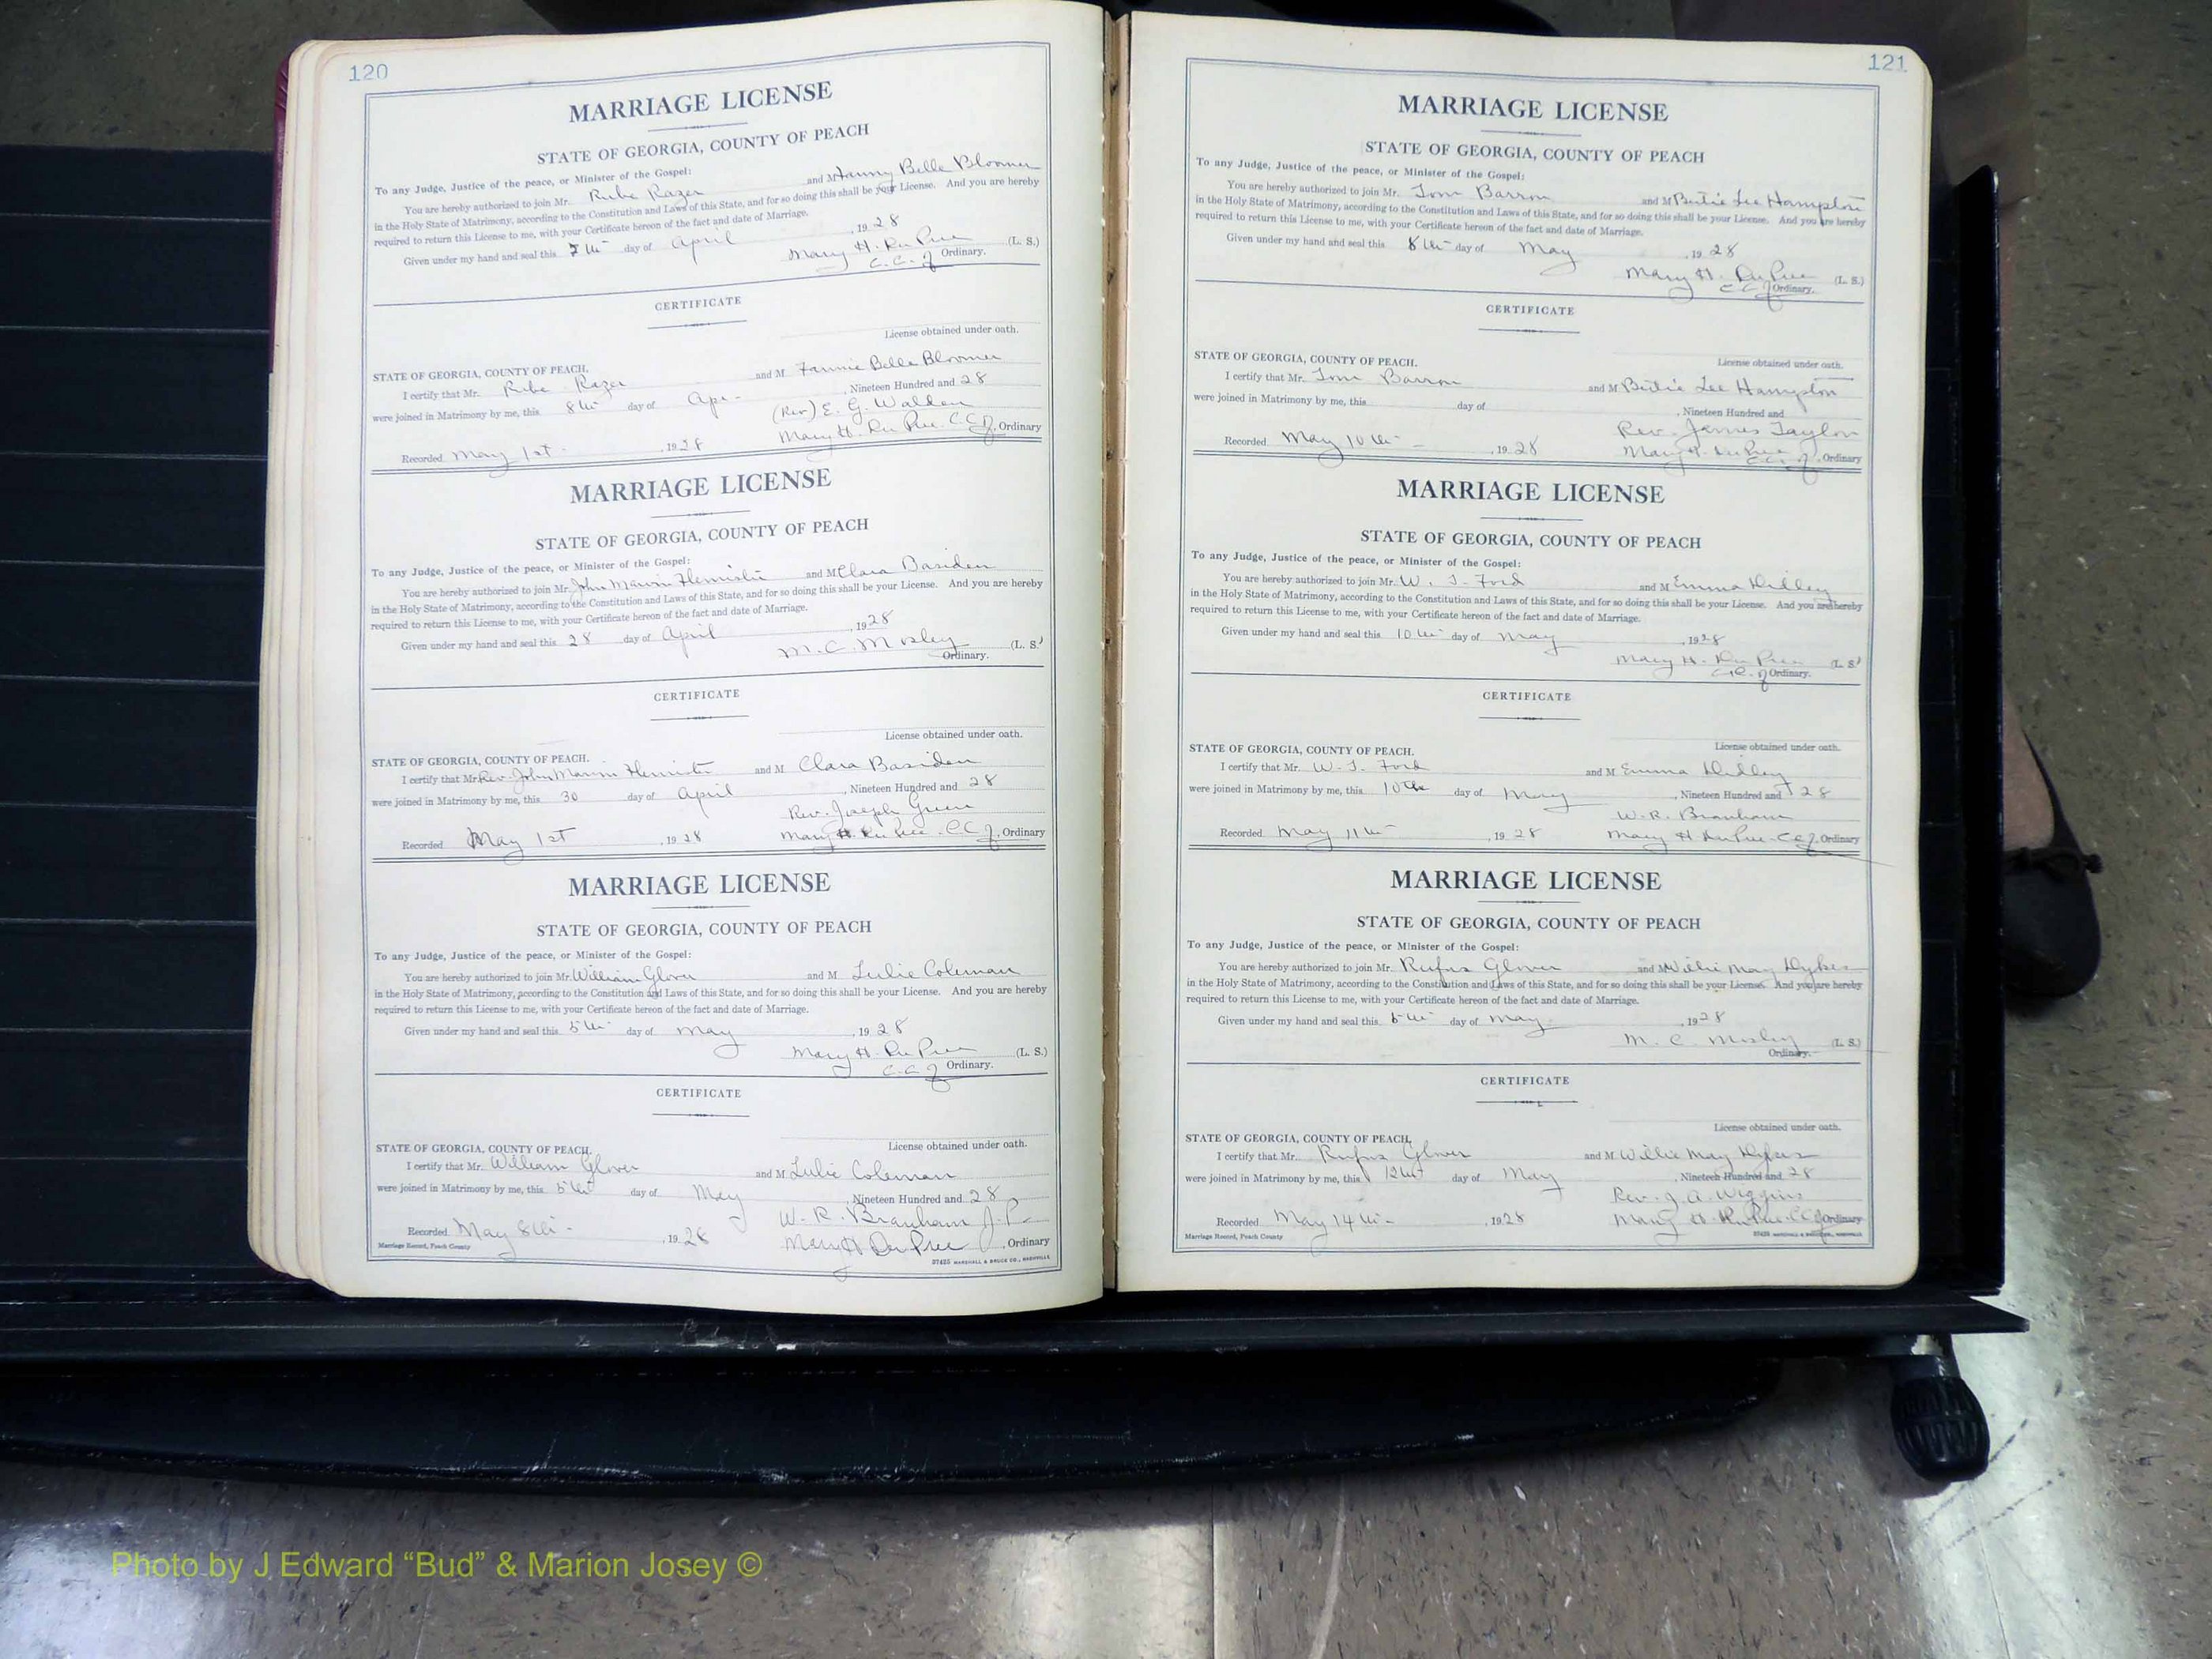 120
MARRIAGE LICENSE
STATE OF GEORGIA, COUNTY OF PEACH
To any Judge, Justice of the peace, or Minister of the Gospel:
You are hereby authorized to join Mr. Rube Razer and M Fanny Belle Bloomer
in the Holy State of Matrimony, according to the Constitution and Laws of this State, and for so doing this shall be your License. And you are hereby
required to return this License to me, with your Certificate hereon of the fact and date of Marriage.
Given under my hand and seal this 7th day of April, 1928
Mary H. Du Pree (L. S.)
C.C.O. Ordinary.
CERTIFICATE
License obtained under oath.
STATE OF GEORGIA, COUNTY OF PEACH.
I certify that Mr. Rube Razer and M Fannie Belle Bloomer
were joined in Matrimony by me, this 8th day of Apr-, Nineteen Hundred and 28
(Rev) E. G. Walden
Recorded May 1st-, 1928 Mary H. Du Pree C.C.O, Ordinary
MARRIAGE LICENSE
STATE OF GEORGIA, COUNTY OF PEACH
To any Judge, Justice of the peace, or Minister of the Gospel:
You are hereby authorized to join Mr. John Marvin and M Clara
in the Holy State of Matrimony, according to the Constitution and Laws of this State, and for so doing this shall be your License. And you are hereby
required to return this License to me, with your Certificate hereon of the fact and date of Marriage.
Given under my hand and seal this 28 day of April, 1928
M. C. Mosley (L. S.)
Ordinary.
CERTIFICATE
License obtained under oath.
STATE OF GEORGIA, COUNTY OF PEACH.
I certify that Mr. Rev. John Marvin and M Clara
were joined in Matrimony by me, this 30 day of April, Nineteen Hundred and 28
Rev. Joseph Green
Recorded May 1st, 1928 Mary H. Du Pree C.C.O, Ordinary
MARRIAGE LICENSE
STATE OF GEORGIA, COUNTY OF PEACH
To any Judge, Justice of the peace, or Minister of the Gospel:
You are hereby authorized to join Mr. William Glover and M Lulie Coleman
in the Holy State of Matrimony, according to the Constitution and Laws of this State, and for so doing this shall be your License. And you are hereby
required to return this License to me, with your Certificate hereon of the fact and date of Marriage.
Given under my hand and seal this 5th day of May, 1928
Mary H. Du Pree (L. S.)
C.C.O Ordinary.
CERTIFICATE
License obtained under oath.
STATE OF GEORGIA, COUNTY OF PEACH.
I certify that Mr. William Glover and M Lulie Coleman
were joined in Matrimony by me, this 5th day of May, Nineteen Hundred and 28
W. R. Branham J.P.
Recorded May 8th-, 1928 Mary H Du Pree, Ordinary
Marriage Record, Peach County 37425 MARSHALL & BRUCE CO., NASHVILLE
121
MARRIAGE LICENSE
STATE OF GEORGIA, COUNTY OF PEACH
To any Judge, Justice of the peace, or Minister of the Gospel:
You are hereby authorized to join Mr. Tom Barron and M Lee Hampton
in the Holy State of Matrimony, according to the Constitution and Laws of this State, and for so doing this shall be your License. And you are hereby
required to return this License to me, with your Certificate hereon of the fact and date of Marriage.
Given under my hand and seal this 8th day of May, 1928
Mary H. Du Pree (L. S.)
C C O Ordinary.
CERTIFICATE
License obtained under oath.
STATE OF GEORGIA, COUNTY OF PEACH.
I certify that Mr. Tom Barron and M Lee Hampton
were joined in Matrimony by me, this day of, Nineteen Hundred and
Rev. James Taylor
Recorded May 10th-, 1928 Mary H. Du Pree C.C.O, Ordinary
MARRIAGE LICENSE
STATE OF GEORGIA, COUNTY OF PEACH
To any Judge, Justice of the peace, or Minister of the Gospel:
You are hereby authorized to join Mr. W. J. Ford and M Emma
in the Holy State of Matrimony, according to the Constitution and Laws of this State, and for so doing this shall be your License. And you are hereby
required to return this License to me, with your Certificate hereon of the fact and date of Marriage.
Given under my hand and seal this 10th day of May, 1928
Mary H. Du Pree (L. S.)
C.C.O Ordinary.
CERTIFICATE
License obtained under oath.
STATE OF GEORGIA, COUNTY OF PEACH.
I certify that Mr. W. J. Ford and M Emma
were joined in Matrimony by me, this 10th day of May, Nineteen Hundred and 28
W. R. Branham
Recorded May 11th, 1928 Mary H Du Pree C C O, Ordinary
MARRIAGE LICENSE
STATE OF GEORGIA, COUNTY OF PEACH
To any Judge, Justice of the peace, or Minister of the Gospel:
You are hereby authorized to join Mr. Rufus Glover and M Willie May Dykes
in the Holy State of Matrimony, according to the Constitution and Laws of this State, and for so doing this shall be your License. And you are hereby
required to return this License to me, with your Certificate hereon of the fact and date of Marriage.
Given under my hand and seal this 5th day of May, 1928
M. C. Mosley (L. S.)
Ordinary.
CERTIFICATE
License obtained under oath.
STATE OF GEORGIA, COUNTY OF PEACH.
I certify that Mr. Rufus Glover and M Willie May Dykes
were joined in Matrimony by me, this 12th day of May, Nineteen Hundred and 28
Rev. J. A. Wiggins
Recorded May 14th-, 1928 Mary H. Du Pree C C O Ordinary
Marriage Record, Peach County 37425 MARSHALL & BRUCE CO., NASHVILLE
Photo by J Edward “Bud” & Marion Josey ©